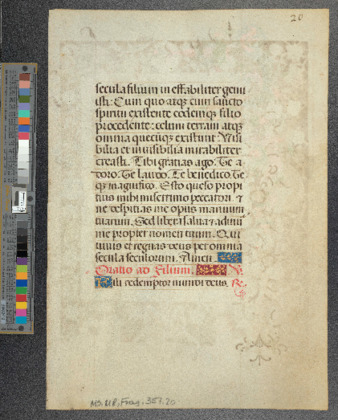 20
secula filium ineffabiliter genu
isti. Cum quo atq; cum sancto
spiritu existente eodemq; filio
procedente: celum terram atq;
omnia quecūq; existunt Uisi
bilia et inuisibilia mirabiliter
creasti. Tibi gratias ago. Te a
doro. Te laudo. Te benedico. Te
q; magnifico. Esto queso propi
tius mihi miserrimo peccatori. et
ne despitias me opus manuum
tuarum. Sed libera salua et adiuua
me propter nomen tuum. Qui
uiuis et regnas deus per omnia
secula seculorum. Amen.
Oratio ad Filium. V.
Fili redemptor mundi deus. R
MS. UB. Frag. 357.20